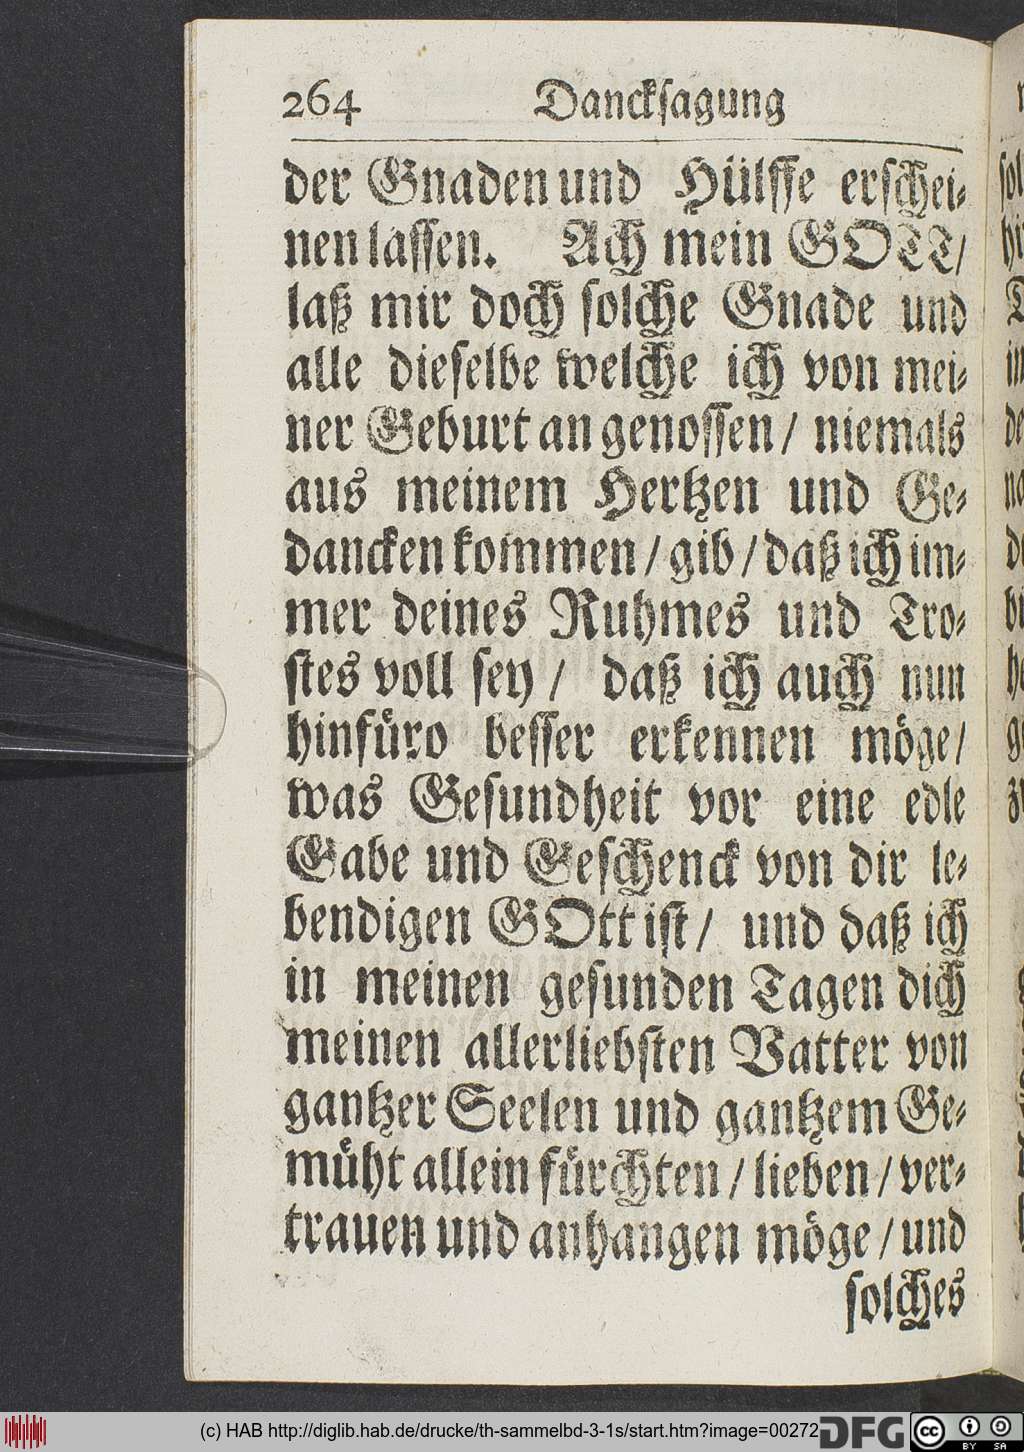 264 Danckſagung
der Gnaden und Hülffe erſchei⸗
nen laſſen. Ach mein GOTT/
laß mir doch ſolche Gnade und
alle dieſelbe welche ich von mei⸗
ner Geburt an genoſſen / niemals
aus meinem Hertzen und Ge⸗
dancken kommen / gib / daß ich im⸗
mer deines Ruhmes und Tro⸗
ſtes voll ſey / daß ich auch nun
hinfüro beſſer erkennen möge/
was Geſundheit vor eine edle
Gabe und Geſchenck von dir le⸗
bendigen GOtt iſt / und daß ich
in meinen geſunden Tagen dich
meinen allerliebſten Vatter von
gantzer Seelen und gantzem Ge⸗
müht allein fürchten / lieben / ver⸗
trauen und anhangen möge / und
ſolches
(c) HAB http://diglib.hab.de/drucke/th-sammelbd-3-1s/start.htm?image=00272
DFG
cc BY SA